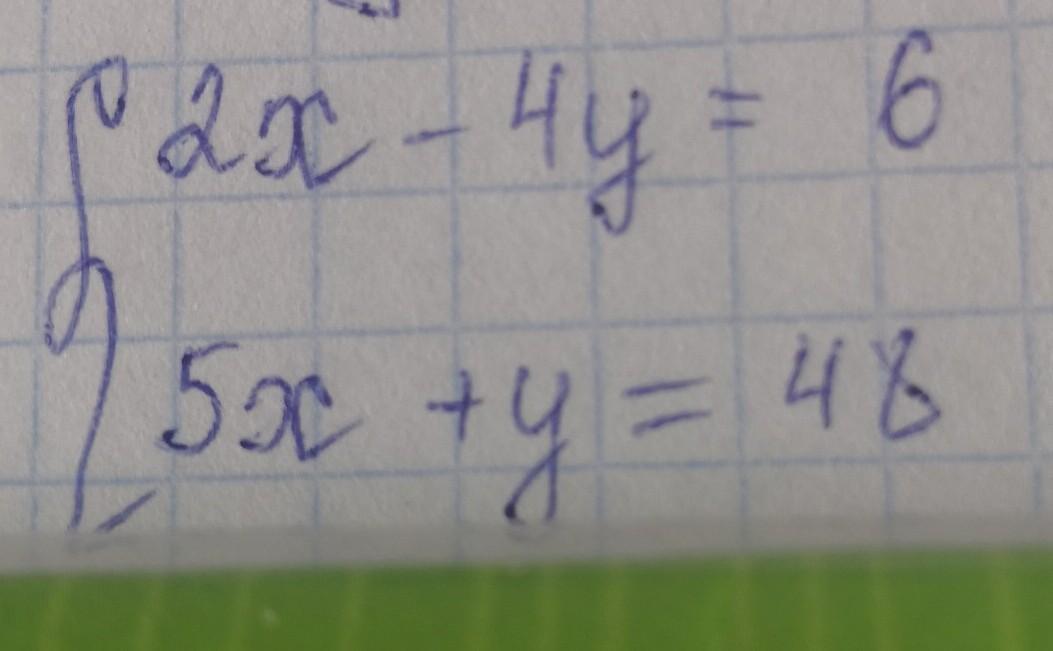 2x - 4y = 6
5x + y = 48